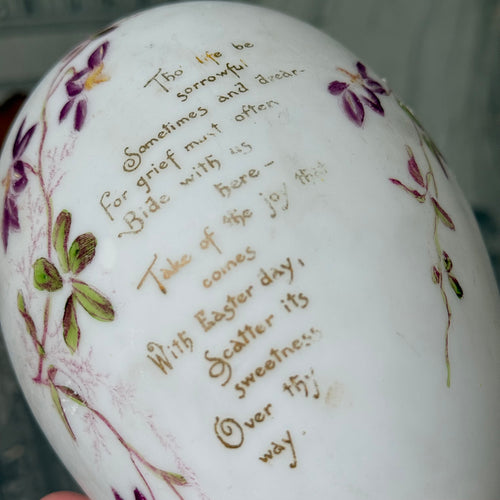 Tho' life be
sorrowful
Sometimes and drear-
For grief must often
Bide with us
here-
Take of the joy that
comes
With Easter day,
Scatter its
sweetness
Over thy
way.